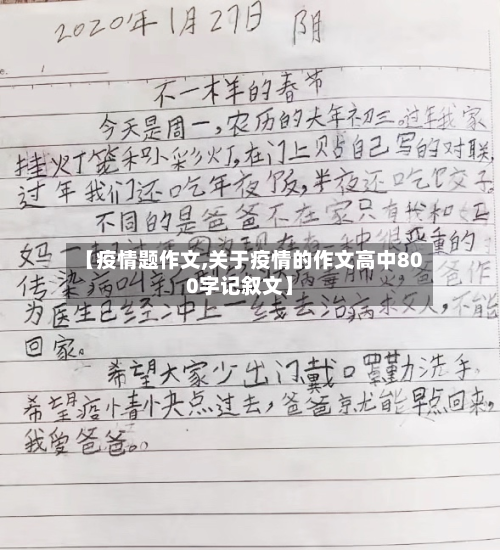 2020年1月27日 阴
不一样的春节
今天是周一,农历的大年初三。过年我家
挂灯笼和小彩灯,在门上贴自己写的对联,
过年我们还吃年夜饭,半夜还吃饺子
不同的是爸爸不在家只有我和
妈一
【疫情题作文,关于疫情的作文高中80
0字记叙文】
传染病叫新 爸爸作
为医生已经冲上一线去治病求人,不能
回家。
希望大家少出门戴口罩勤洗手,
希望疫情快点过去,爸爸就能早点回来。
我爱爸爸。